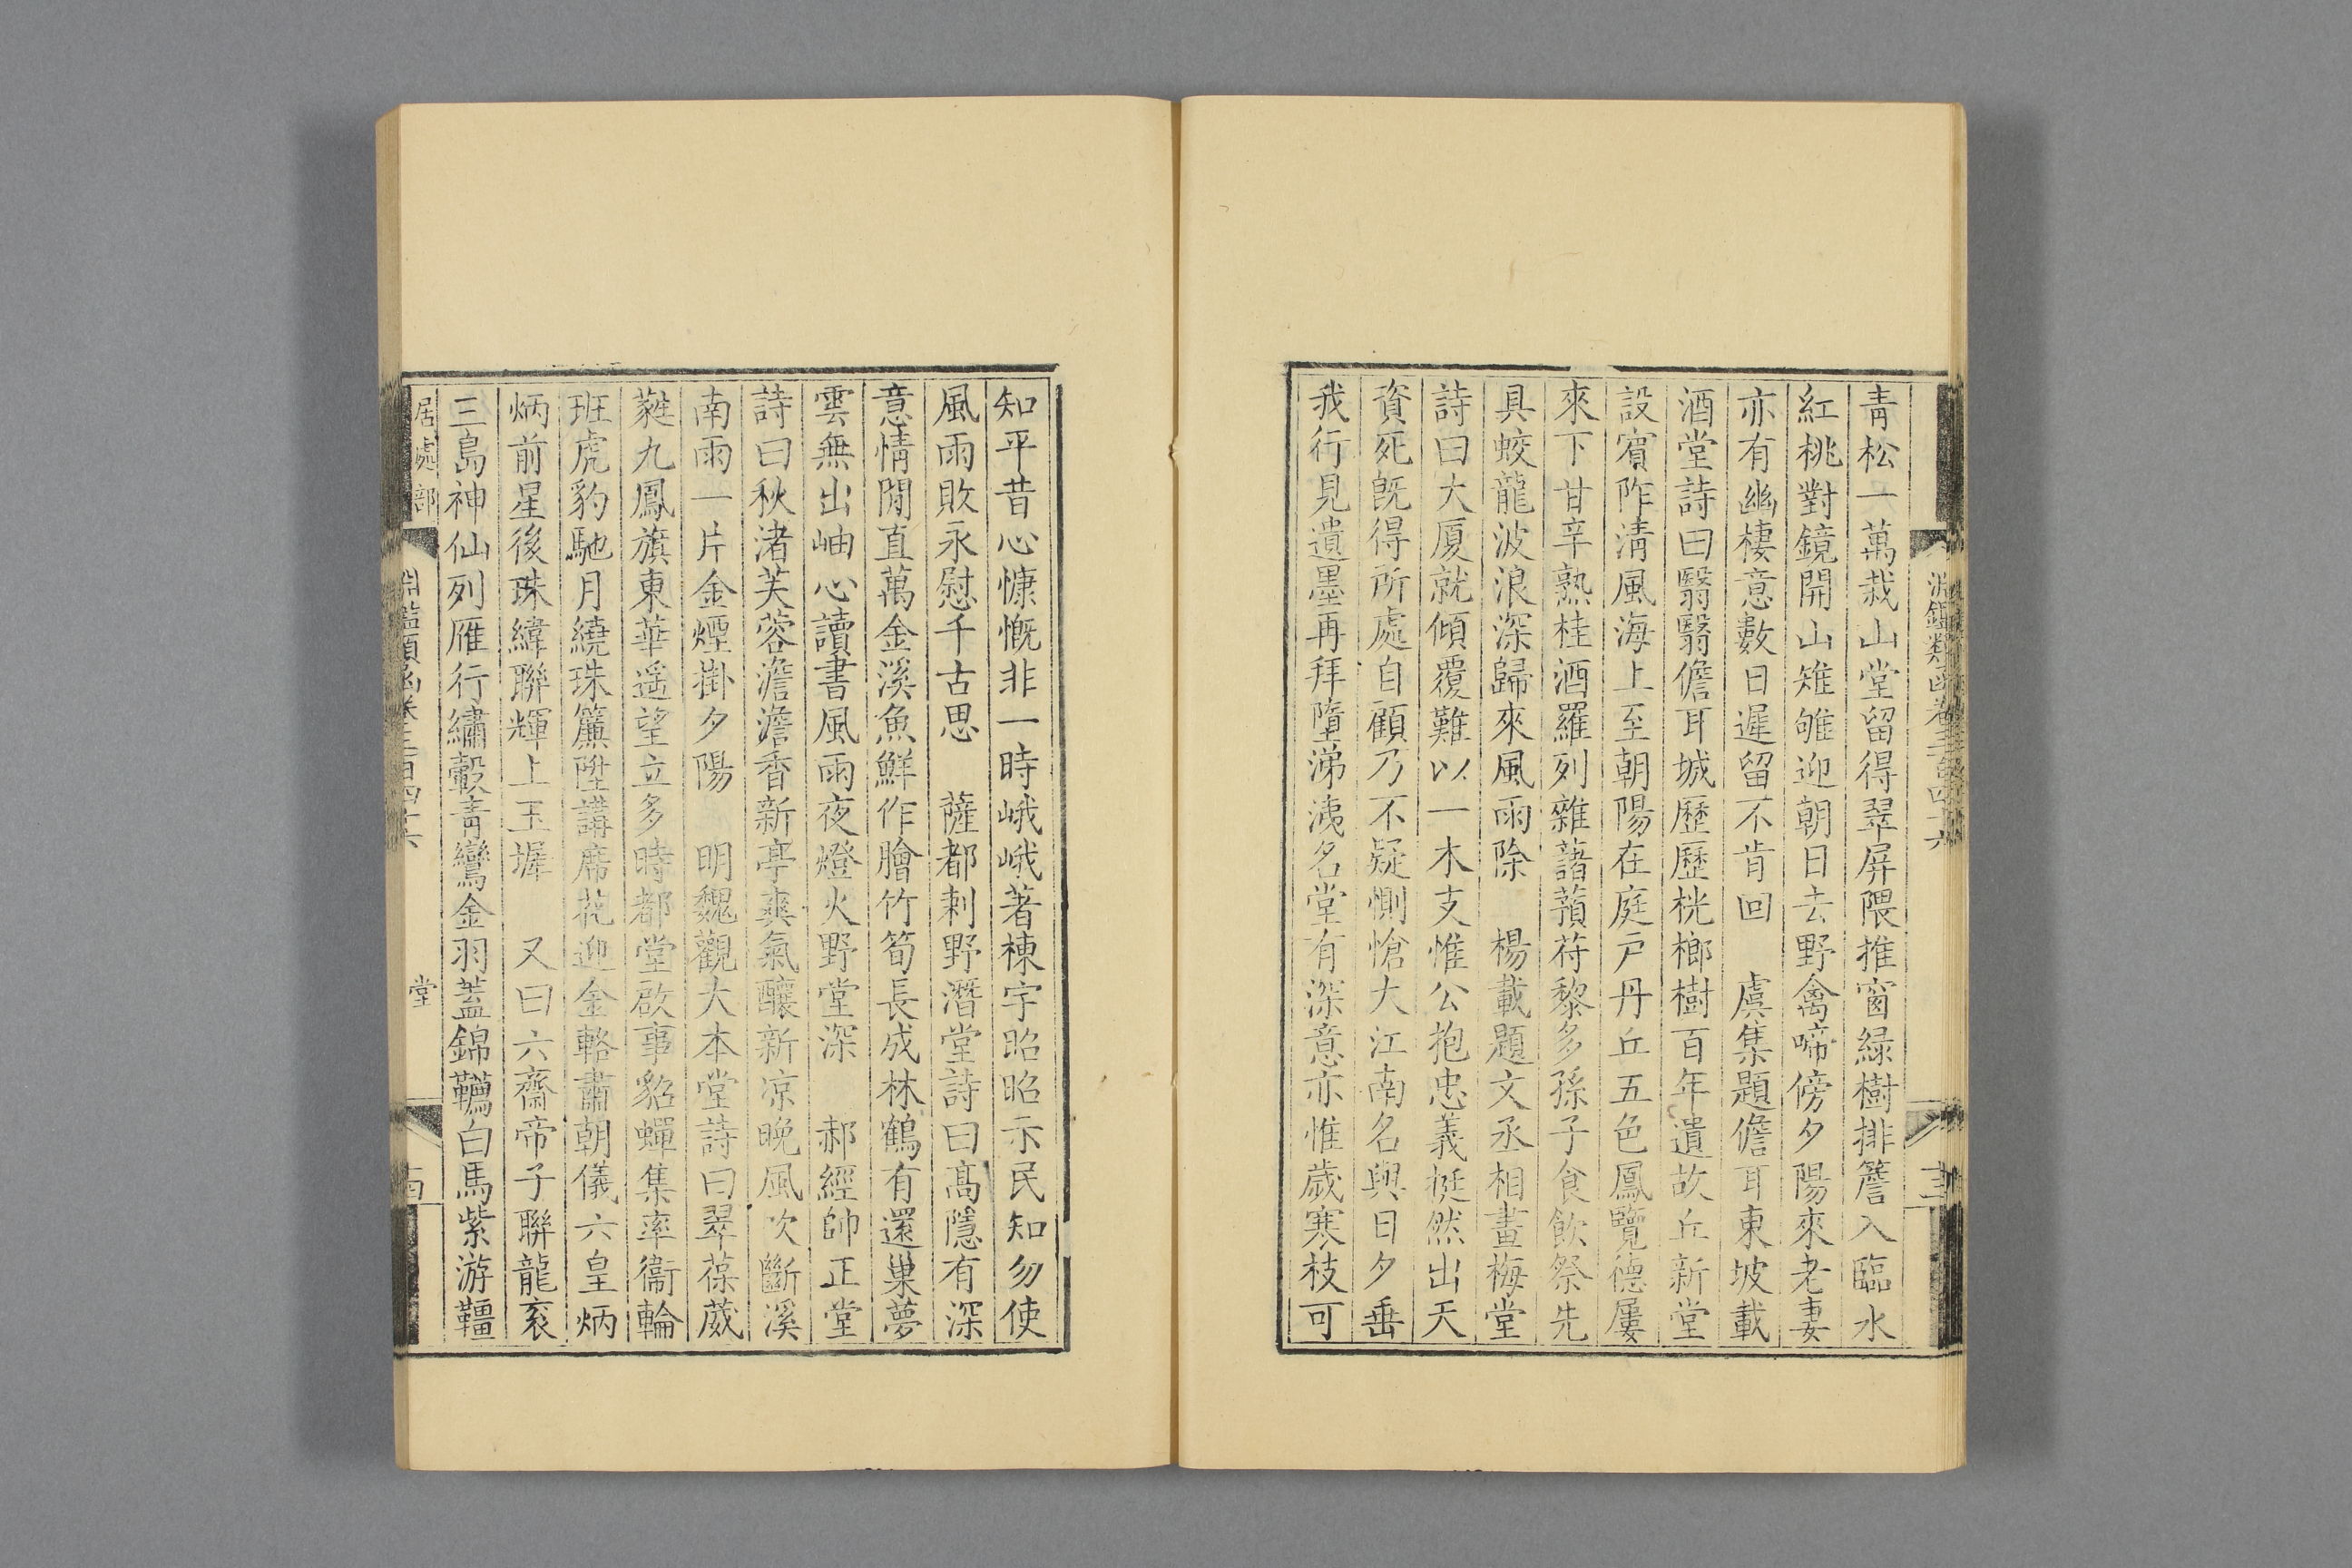 青松一萬栽山堂留得翠屏隈推窗緑樹排簷入臨水
紅桃對鏡開山雉雊迎朝日去野禽啼傍夕陽來老妻
亦有幽棲意數日遲留不肯回　虞集題儋耳東坡載
酒堂詩曰翳翳儋耳城歷歷桄榔樹百年遺故丘新堂
設賓阼清風海上至朝陽在庭戸丹丘五色鳳覽德屢
來下甘辛熟桂酒羅列雜藷蕷苻黎多孫子食飲祭先
具蛟龍波浪深歸來風雨除　楊載題文丞相畫梅堂
詩曰大厦就傾覆難以一木支惟公抱忠義挺然出天
資死旣得所處自顧乃不疑惻愴大江南名與日夕垂
我行見遺墨再拜墮涕洟名堂有深意亦惟歲寒枝可
知平昔心慷慨非一時峨峨著棟宇昭昭示民知勿使
風雨敗永慰千古思　薩都剌野潛堂詩曰髙隱有深
意情閒直萬金溪魚鮮作膾竹筍長成林鶴有還巢夢
雲無出岫心讀書風雨夜燈火野堂深　郝經帥正堂
詩曰秋渚芙蓉澹澹香新亭爽氣釀新凉晚風吹斷溪
南雨一片金煙掛夕陽　明魏觀大本堂詩曰翠葆葳
蕤九鳳旗東華遥望立多時都堂啟事貂蟬集率衞輪
班虎豹馳月繞珠簾陞講席花迎金輅肅朝儀六皇炳
炳前星後珠緯聯輝上玉墀　又曰六齋帝子聯龍衮
三島神仙列雁行繡轂青鸞金羽蓋錦韉白馬紫游韁
居處部
淵鑑類函卷三百四十六
堂
十四